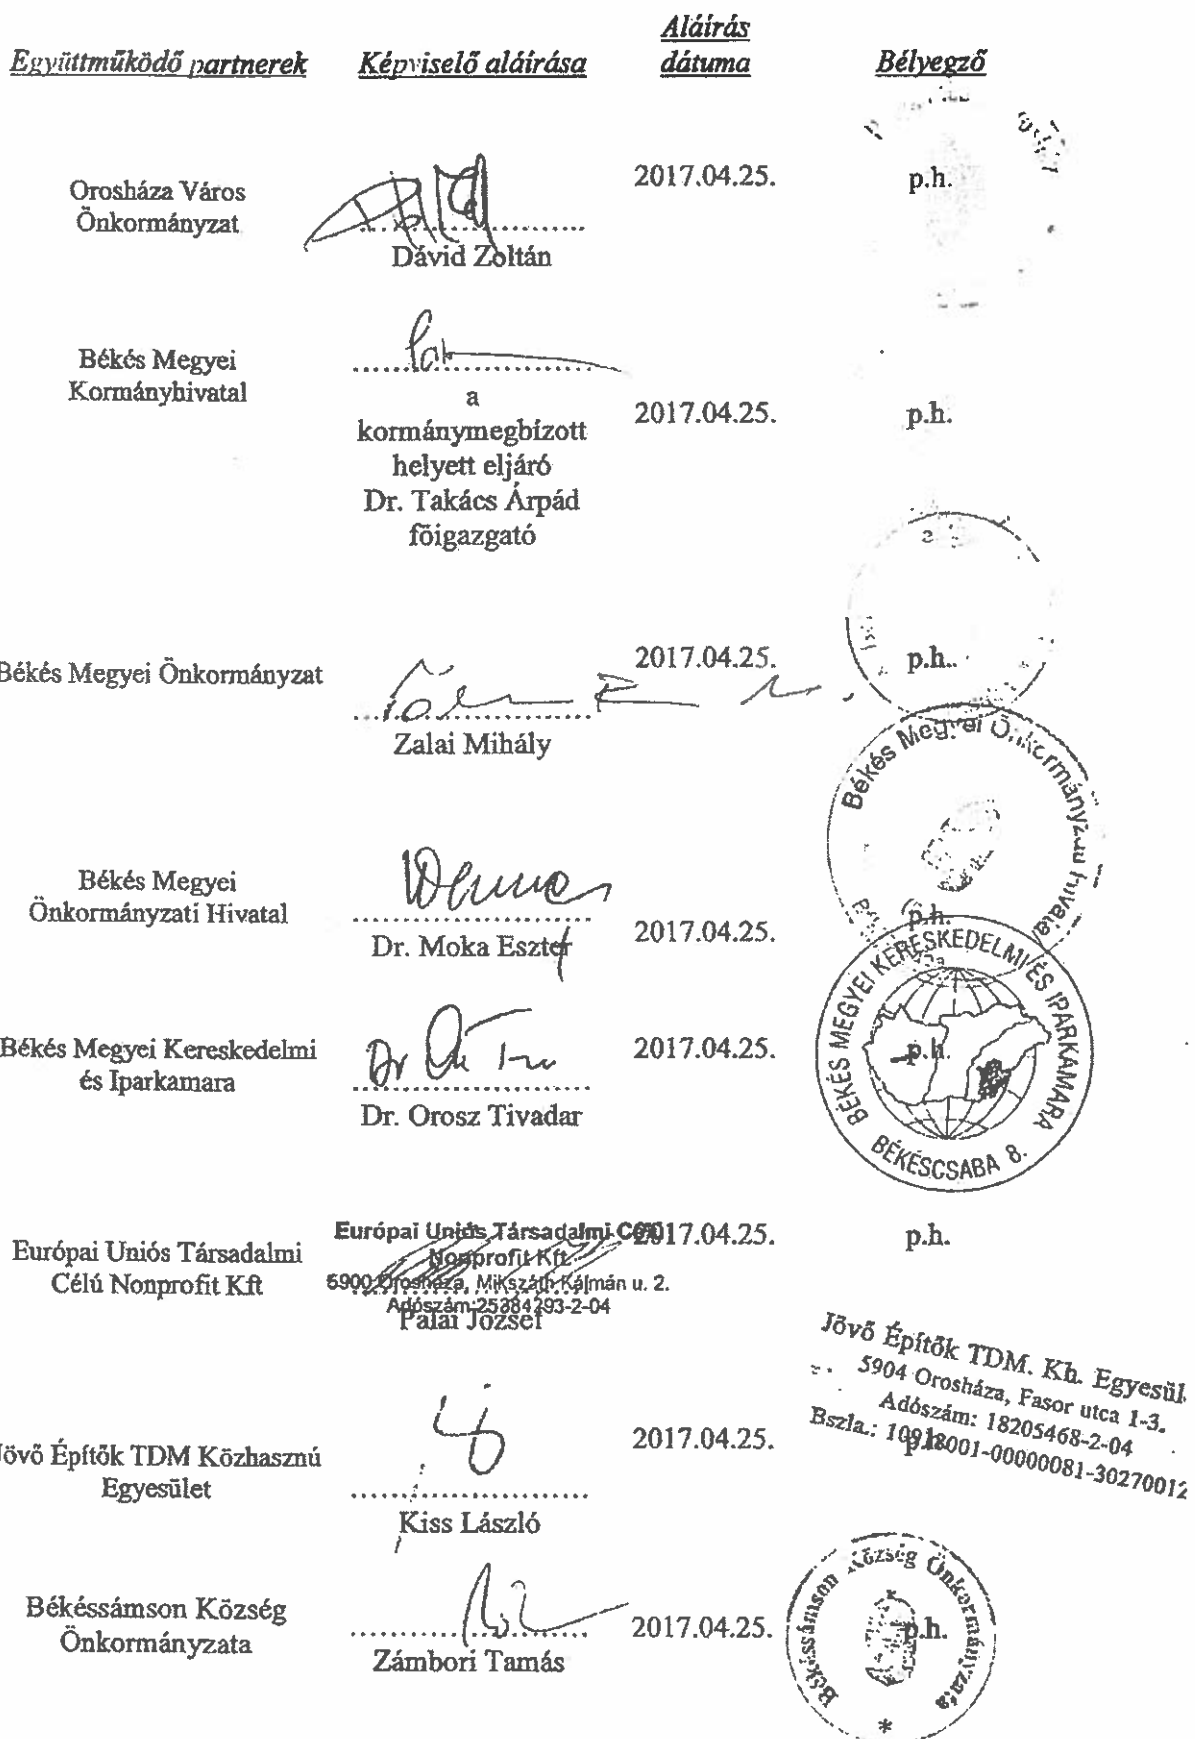 Aláírás
Együttműködő partnerek Képviselő aláírása dátuma Bélyegző
Orosháza Város
Önkormányzat
Dávid Zoltán
2017.04.25.
p.h.
Békés Megyei
Kormányhivatal
a
kormánymegbízott
helyett eljáró
Dr. Takács Árpád
főigazgató
2017.04.25.
p.h.
Békés Megyei Önkormányzat
Zalai Mihály
2017.04.25.
p.h.
Békés Megyei
Önkormányzati Hivatal
Dr. Moka Eszter
2017.04.25.
p.h.
Békés Megyei Önkormányzati Hivatal
Békés Megyei Kereskedelmi
és Iparkamara
Dr. Orosz Tivadar
2017.04.25.
p.h.
BÉKÉS MEGYEI KERESKEDELMI ÉS IPARKAMARA
BÉKÉSCSABA 8.
Európai Uniós Társadalmi
Célú Nonprofit Kft
Európai Uniós Társadalmi Célú
Nonprofit Kft.
5900 Orosháza, Mikszáth Kálmán u. 2.
Adószám:25384293-2-04
Palai József
2017.04.25.
p.h.
Jövő Építők TDM Közhasznú
Egyesület
Kiss László
2017.04.25.
p.h.
Jövő Építők TDM. Kh. Egyesül
5904 Orosháza, Fasor utca 1-3.
Adószám: 18205468-2-04
Bszla.: 10918001-00000081-30270012
Békéssámson Község
Önkormányzata
Zámbori Tamás
2017.04.25.
p.h.
Békéssámson Község Önkormányzata
*